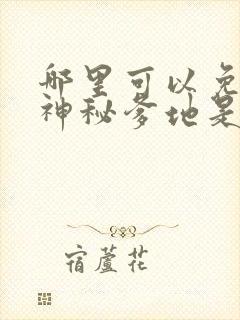 哪里可以免
神秘爹地是
宿蘆花